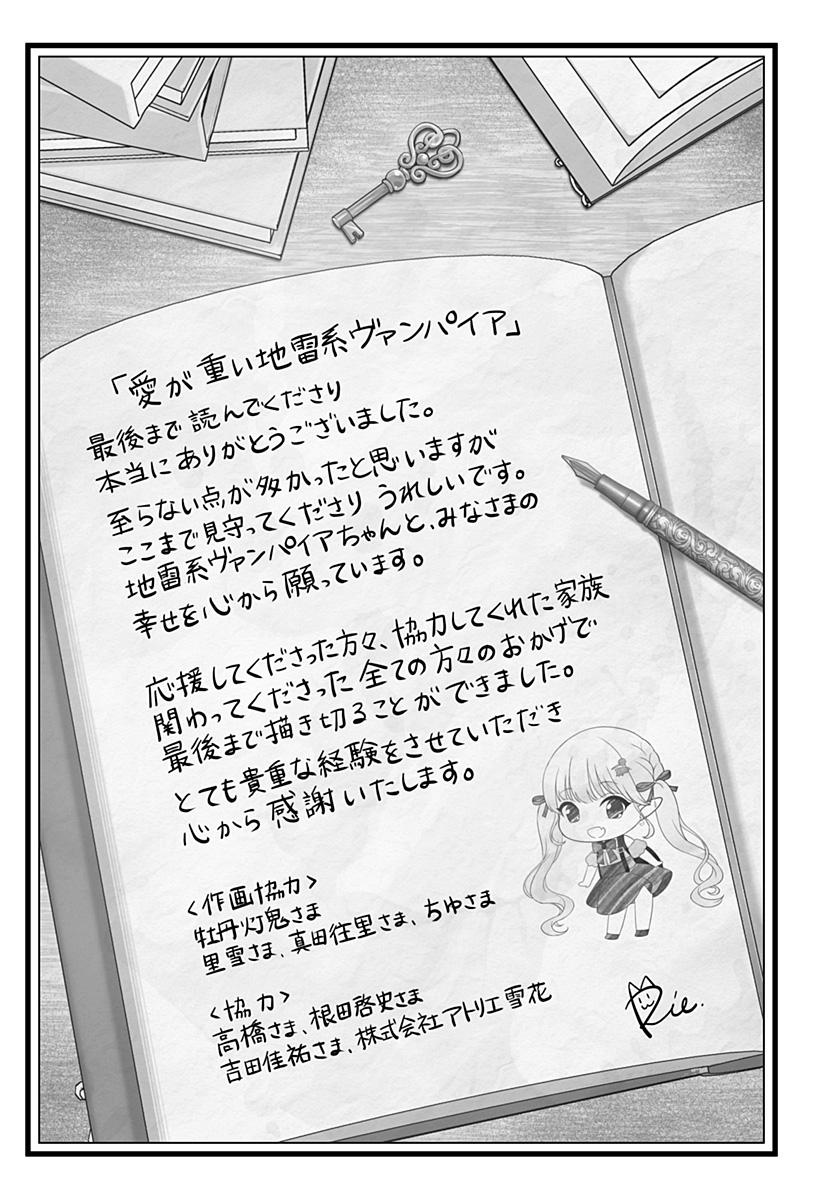 「愛が重い地雷系ヴァンパイア」
最後まで読んでくださり
本当にありがとうございました。
至らない点が多かったと思いますが
ここまで見守ってくださり うれしいです。
地雷系ヴァンパイアちゃんと、みなさまの
幸せを心から願っています。
応援してくださった方々、協力してくれた家族
関わってくださった全ての方々のおかげで
最後まで描き切ることができました。
とても貴重な経験をさせていただき
心から感謝いたします。
〈作画協力〉
牡丹灯鬼さま
里雪さま、真田往里さま、ちゆさま
〈協力〉
高橋さま、根田啓史さま
吉田佳祐さま、株式会社アトリエ雪花
Rie.